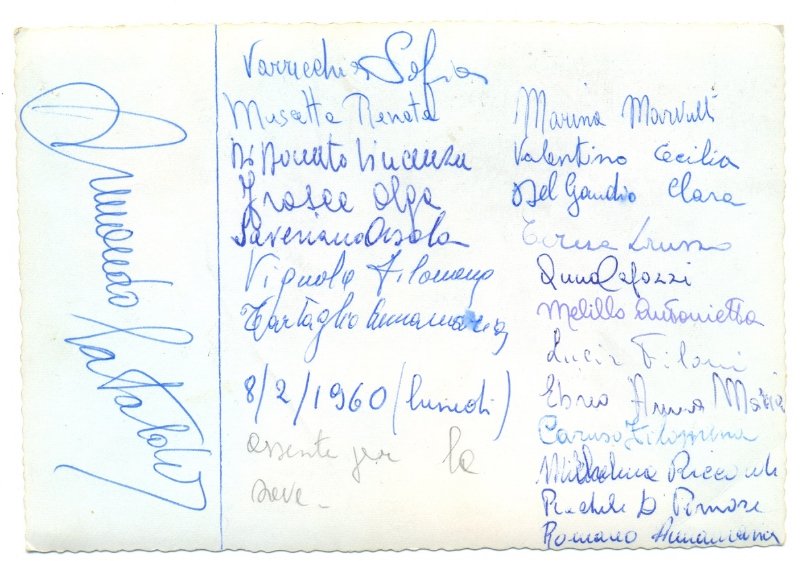 Armando Cataldo
Varricchio Sofia
Musetta Renata
Di Donato Vincenza
Frasca Olga
Saveriano Orsola
Vignola Filomena
Tartaglia Annamaria
8/2/1960 (lunedì)
assente per la
neve.
Marina Marvulli
Valentino Cecilia
Del Gaudio Clara
Teresa Lrusso
Anna Cafazzi
Melillo Antonietta
Lucia Filoni
Ebreo Anna Maria
Caruso Filomena
Michelina Ricciardi
Rachele D
Romano Annamaria